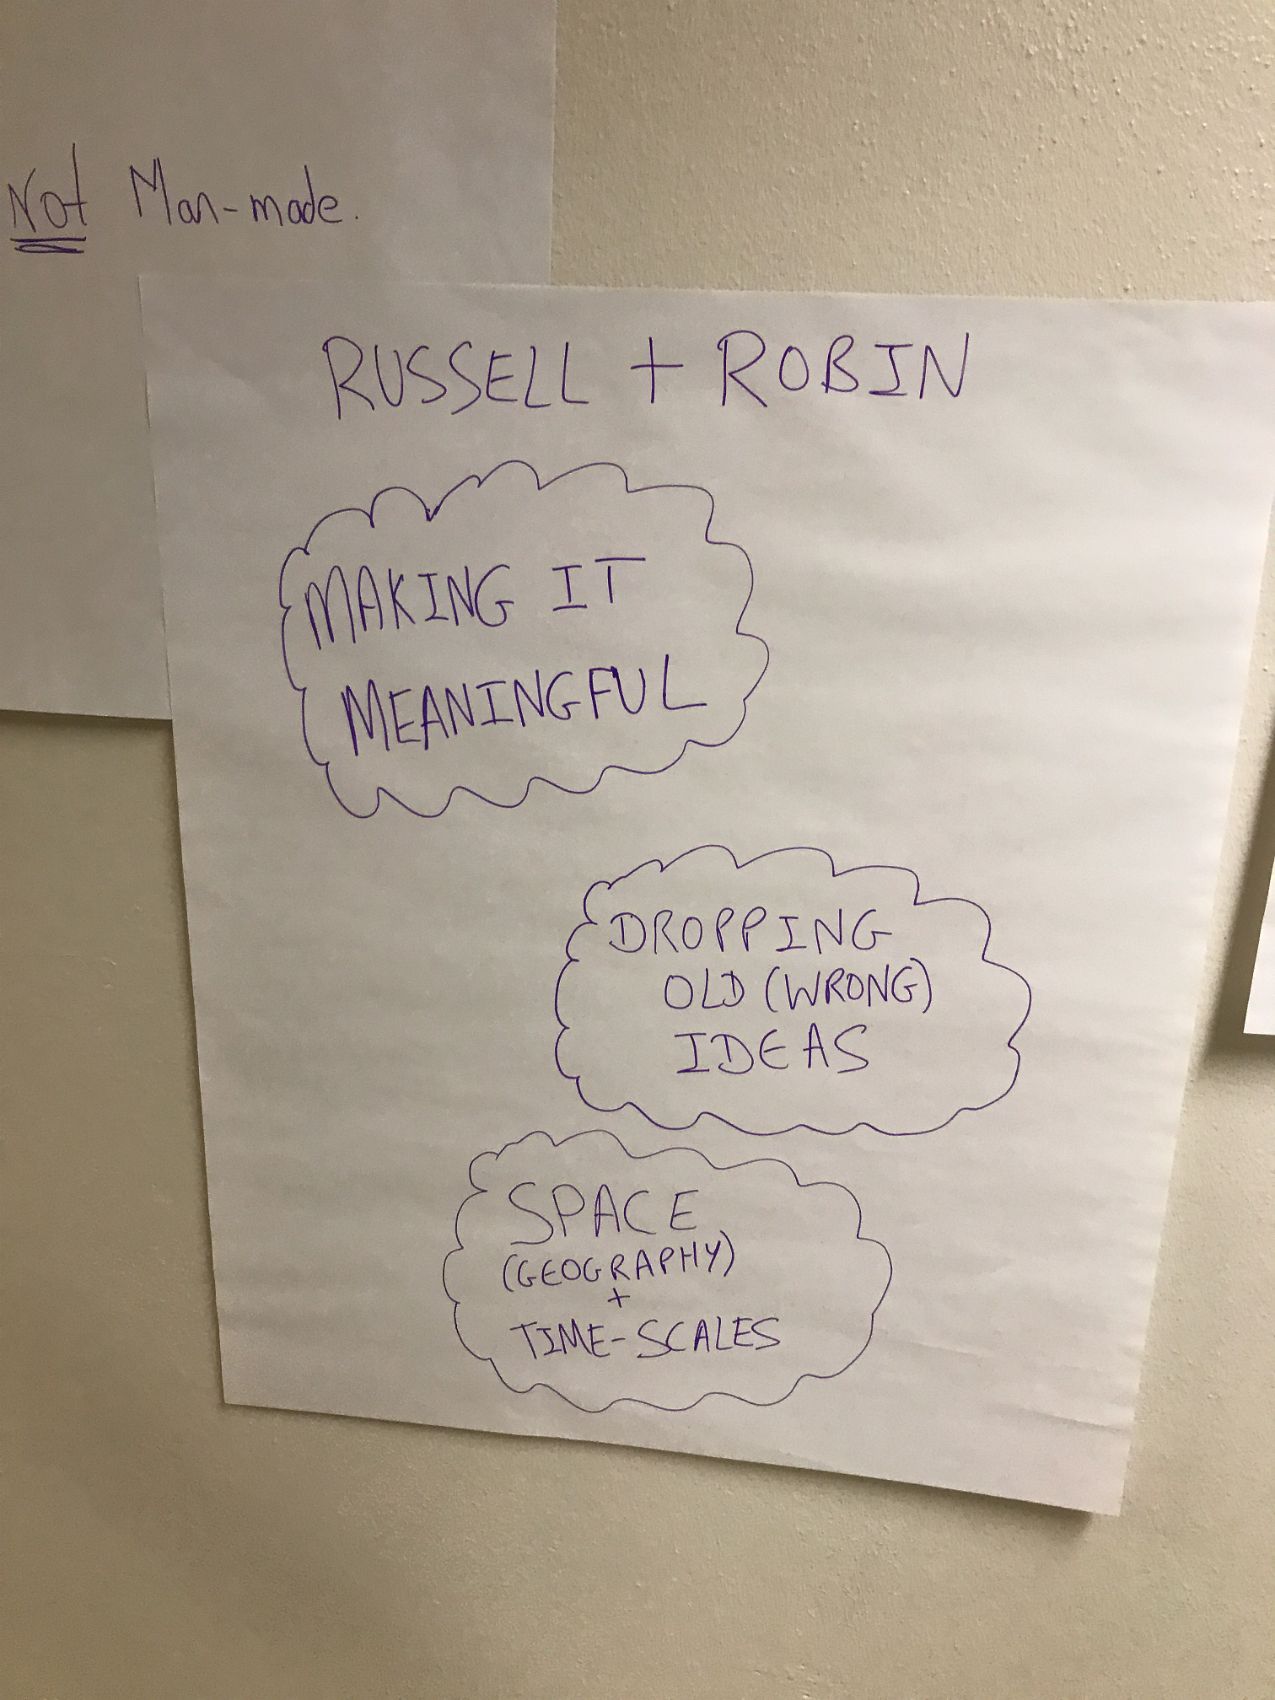 Not Man-made.
RUSSELL + ROBIN
MAKING IT
MEANINGFUL
DROPPING
OLD (WRONG)
IDEAS
SPACE
(GEOGRAPHY)
+
TIME-SCALES